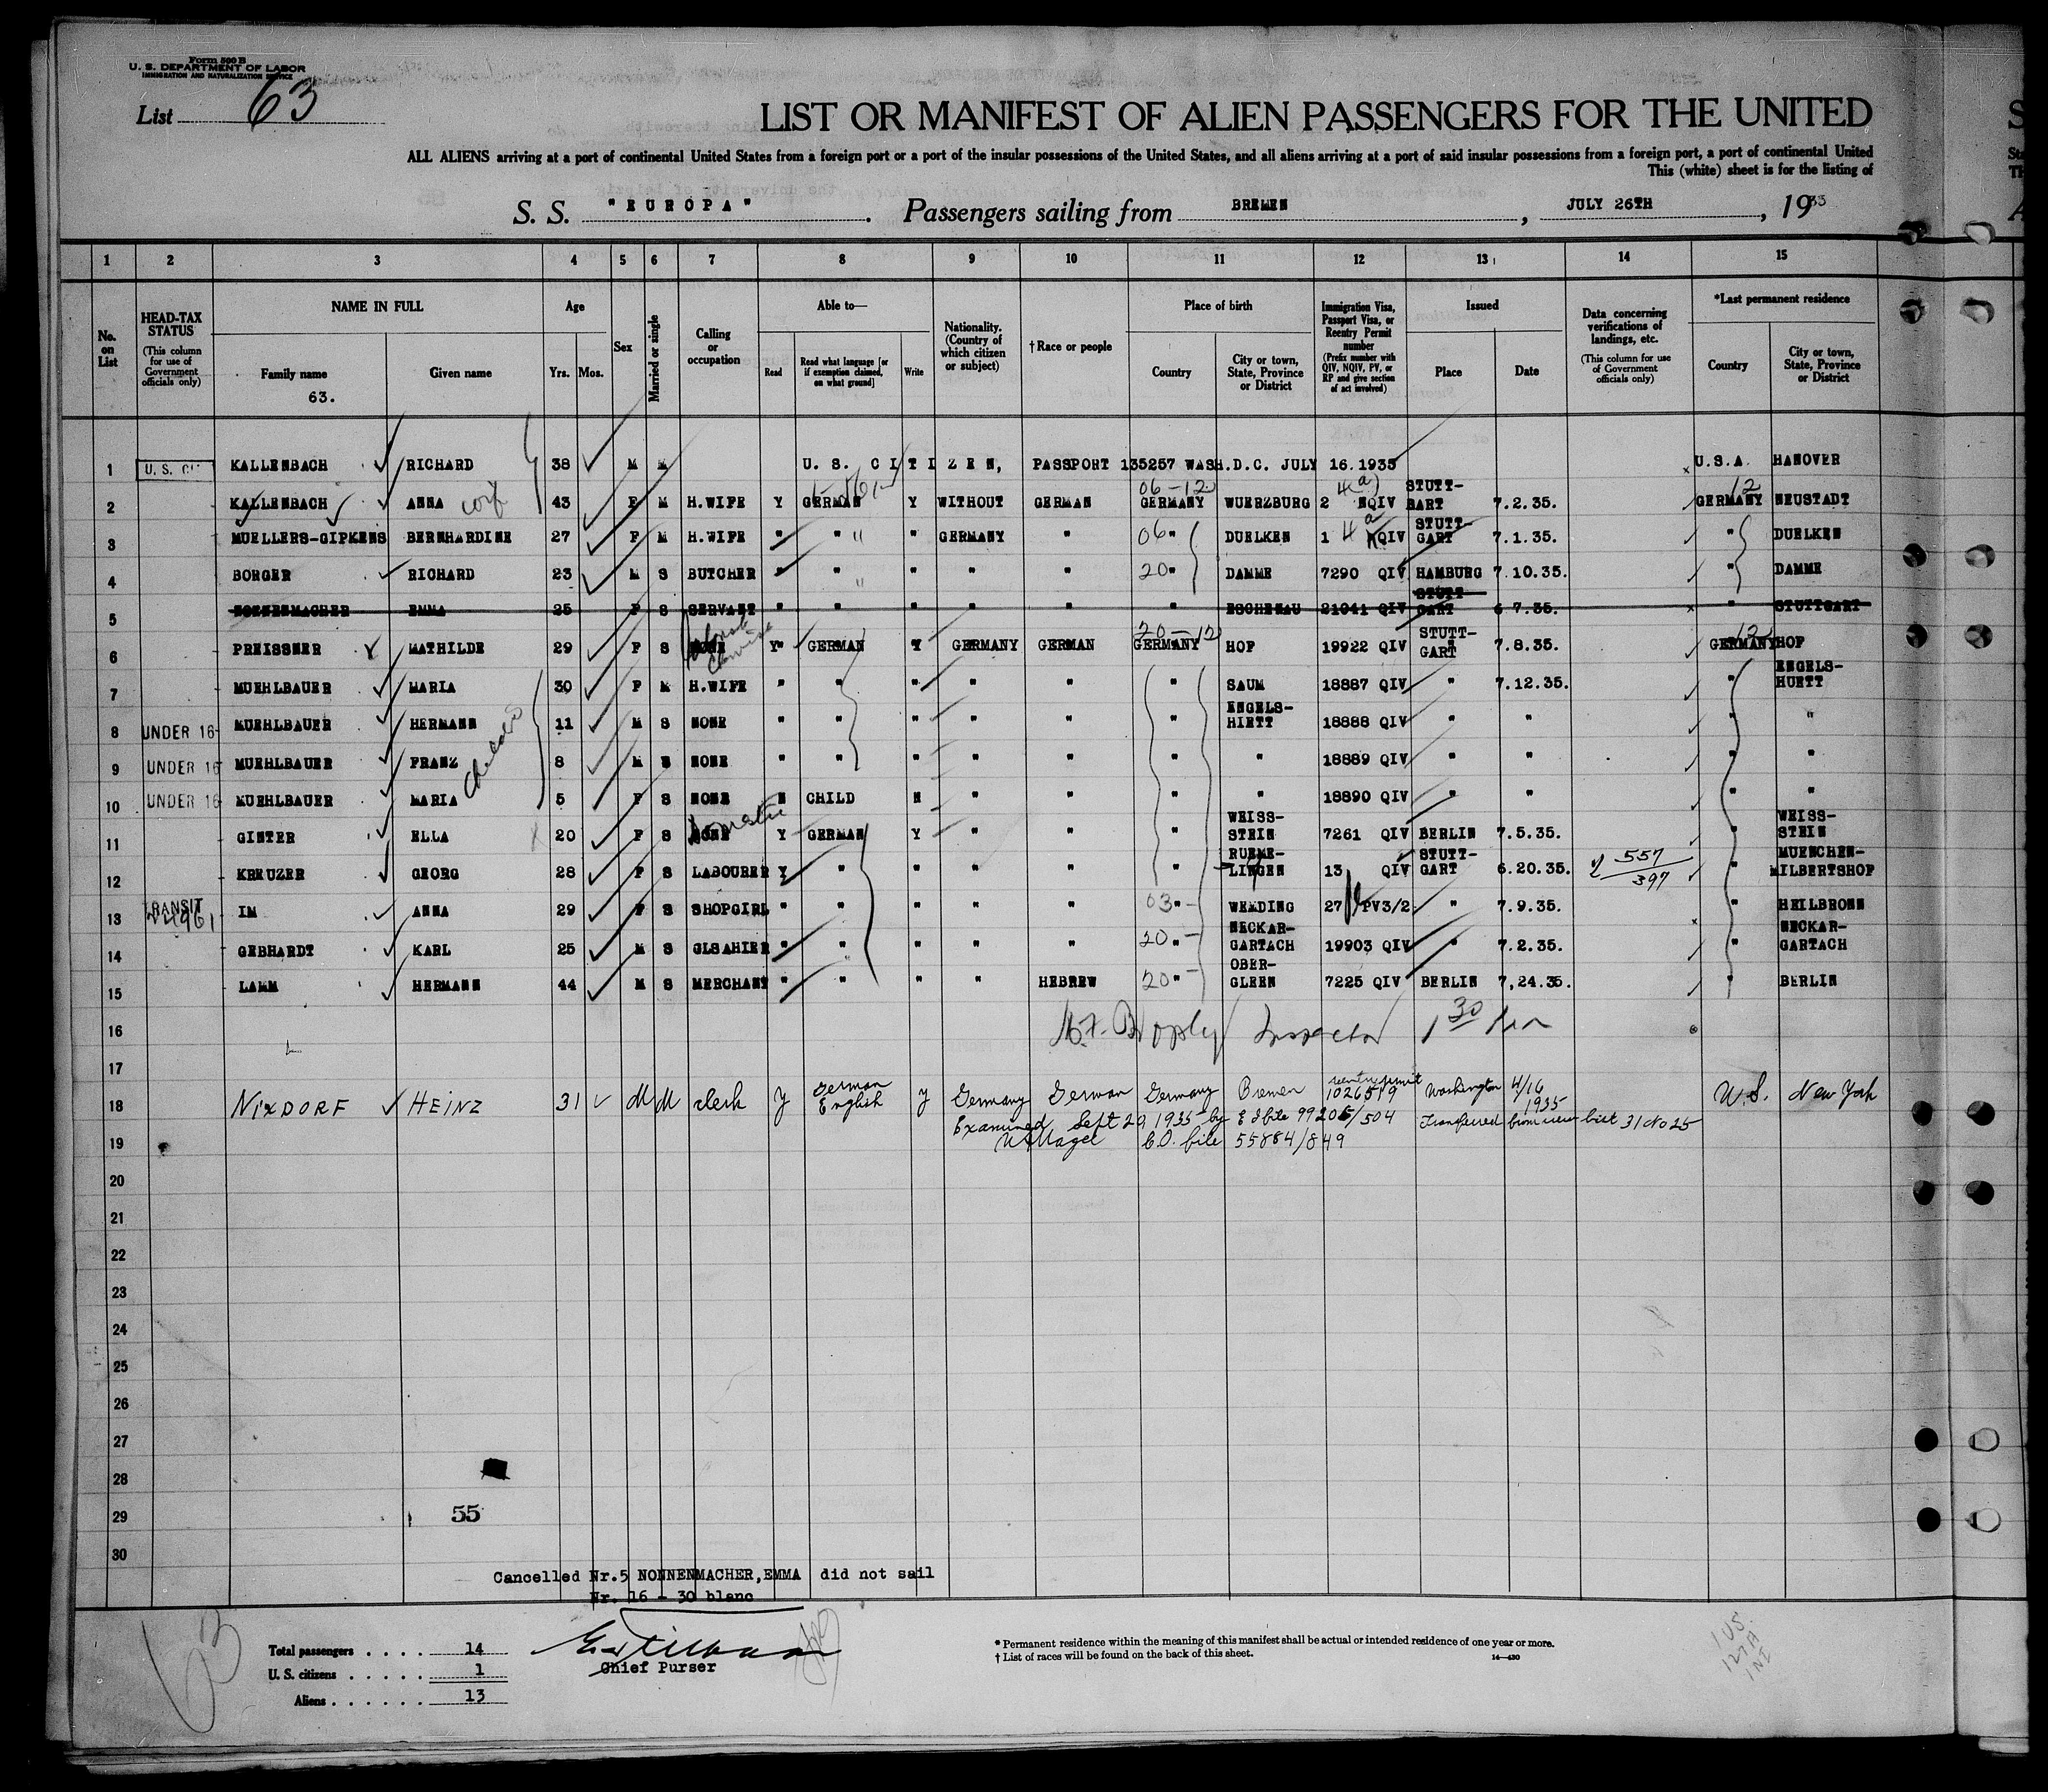 Form 500 B
U. S. DEPARTMENT OF LABOR
IMMIGRATION AND NATURALIZATION SERVICE
List 63
LIST OR MANIFEST OF ALIEN PASSENGERS FOR THE UNITED
ALL ALIENS arriving at a port of continental United States from a foreign port or a port of the insular possessions of the United States, and all aliens arriving at a port of said insular possessions from a foreign port, a port of continental United
This (white) sheet is for the listing of
S. S. "EUROPA". Passengers sailing from BREMEN, JULY 26TH, 19
1 2 3 4 5 6 7 8 9 10 11 12 13 14 15
No. on List
HEAD-TAX STATUS (This column for use of Government officials only)
NAME IN FULL Family name Given name
63.
Age Yrs. Mos.
Sex
Married or single
Calling or occupation
Able to— Read Read what language [or if exemption claimed, on what ground] Write
Nationality. (Country of which citizen or subject)
†Race or people
Place of birth Country City or town, State, Province or District
Immigration Visa, Passport Visa, or Reentry Permit number (Prefix number with QIV, NQIV, PV, or RP and give section of act involved)
Issued Place Date
Data concerning verifications of landings, etc. (This column for use of Government officials only)
*Last permanent residence Country City or town, State, Province or District
1 U.S. CI KALLENBACH RICHARD 38 M M U. S. CITIZEN, PASSPORT 135257 WASH.D.C. JULY 16.1935 U.S.A. HANOVER
06-12 4(a) 12
2 KALLENBACH ANNA 43 F M H.WIFE Y GERMAN Y WITHOUT GERMAN GERMANY WUERZBURG 2 NQIV STUTT-GART 7.2.35. GERMANY NEUSTADT
3 MUELLERS-GIPKENS BERNHARDINE 27 F M H.WIFE " " " GERMANY " 06 " DUELKEN 1 4a NQIV STUTT-GART 7.1.35. " DUELKEN
4 BORGER RICHARD 23 M S BUTCHER " " " " " 20 " DAMME 7290 QIV HAMBURG 7.10.35. " DAMME
5 NONNENMACHER EMMA 25 F S SERVANT " " " " " " ESCHENAU 21041 QIV STUTT-GART 6 7.35. " STUTTGART
20-12 12
6 PREISSNER MATHILDE 29 F S NONE Y" GERMAN Y GERMANY GERMAN GERMANY HOF 19922 QIV STUTT-GART 7.8.35. GERMANY HOF
7 MUEHLBAUER MARIA 30 F M H.WIFE " " " " " " SAUM 18887 QIV " 7.12.35. " ENGELS-HUETT
8 UNDER 16 MUEHLBAUER HERMANN 11 M S NONE " " " " " " ENGELS-HIETT 18888 QIV " " " "
9 UNDER 16 MUEHLBAUER FRANZ 8 M S NONE " " " " " " " 18889 QIV " " " "
10 UNDER 16 MUEHLBAUER MARIA 5 F S NONE N CHILD N " " " " 18890 QIV " " " "
11 GINTER ELLA 20 F S NONE Domestic Y GERMAN Y " " " WEISS-STEIN 7261 QIV BERLIN 7.5.35. " WEISS-STEIN
12 KREUZER GEORG 28 F S LABOURER Y " " " " " RUEME-LINGEN 13 QIV STUTT-GART 6.20.35. 557 397 " MUENCHEN-MILBERTSHOF
13 TRANSIT IM ANNA 29 F S SHOPGIRL " " " " " 03 " WEMDING 27 PV3/2 " 7.9.35. " HEILBRONN
14 GEBHARDT KARL 25 M S GLSAHIER " " " " " 20 " NECKAR-GARTACH 19903 QIV " 7.2.35. " NECKAR-GARTACH
15 LAMM HERMANN 44 M S MERCHANT " " " " HEBREW 20 " OBER-GLEEN 7225 QIV BERLIN 7,24.35. " BERLIN
16 Inspector 1 30
17
18 NIXDORF HEINZ 31 M M clerk y German English y Germany German Germany Bremen reentry permit 1026519 Washington 4/16 1935 U.S. New York
Examined Sept 20, 1935 by E I file 99205/504 Transferred from list 31 No 25
19 C.O. file 55884/849
20
21
22
23
24
25
26
27
28
29 55
30
Cancelled Nr.5 NONNENMACHER,EMMA did not sail
Nr. 16 - 30 blanc
Total passengers . . . . 14
U. S. citizens . . . . . 1
Aliens . . . . . . 13
Chief Purser
* Permanent residence within the meaning of this manifest shall be actual or intended residence of one year or more.
† List of races will be found on the back of this sheet.
14—430
63
1 US.